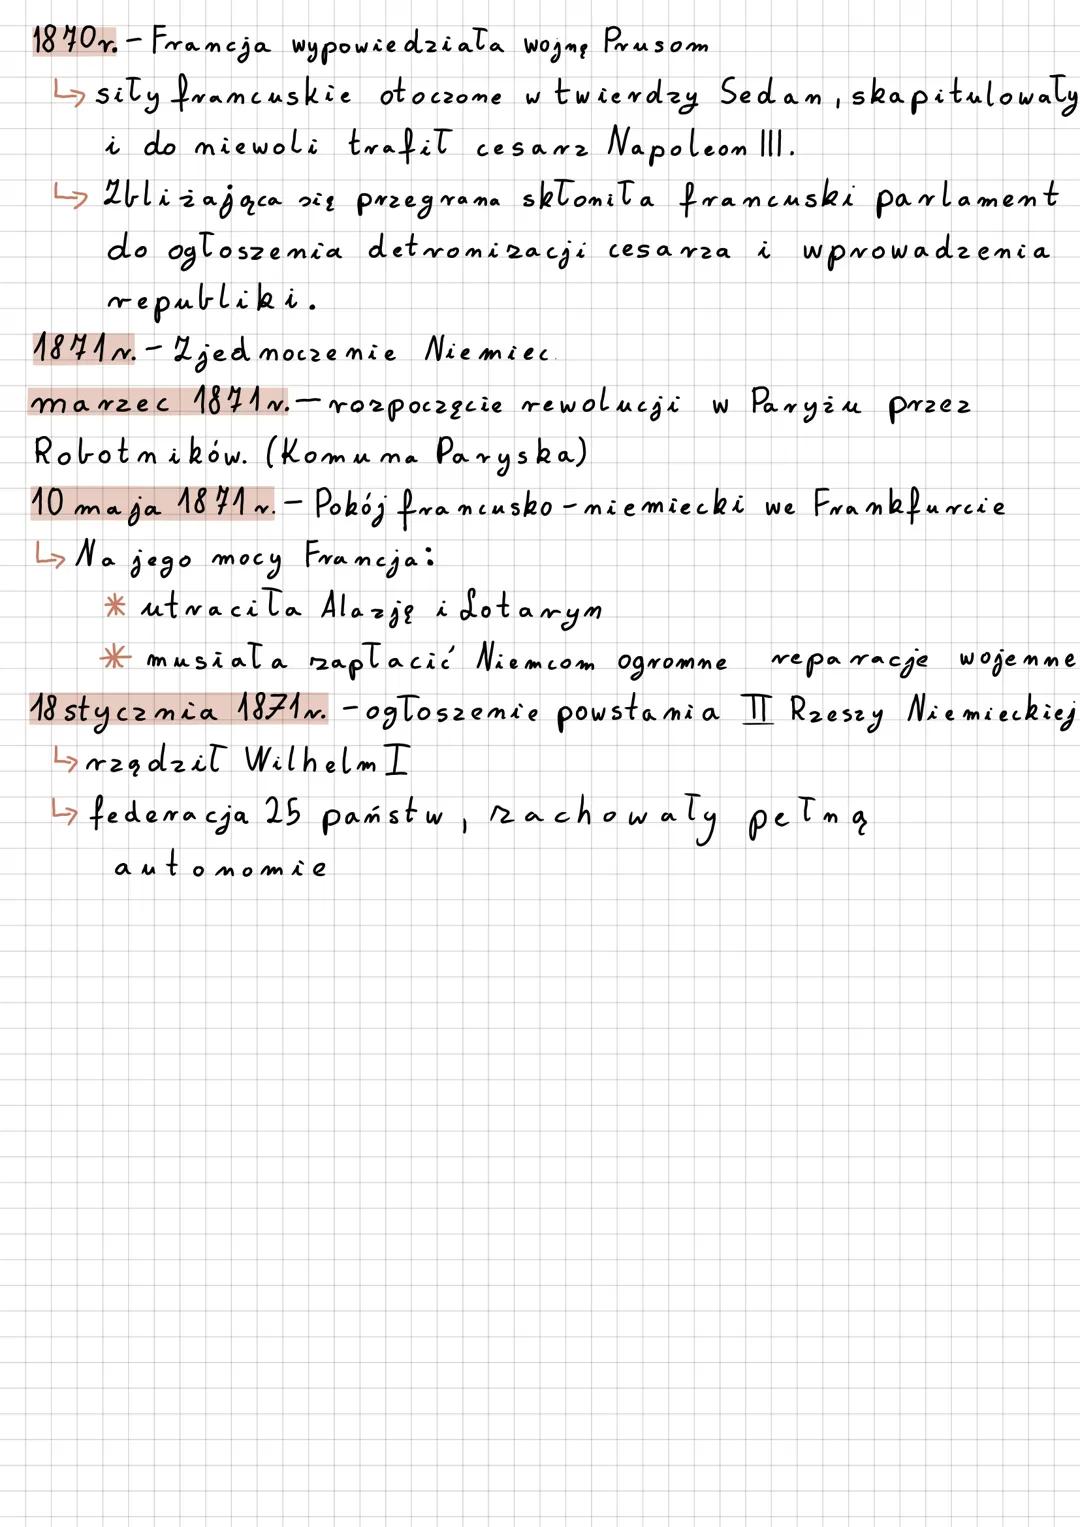 1870r. - Francja wypowiedziała wojnę Prusom
↳ siły francuskie otoczone w twierdzy Sedan, skapitulowały
i do niewoli trafił cesarz Napoleon III.
↳ Zbliżająca się przegrana skłoniła francuski parlament
do ogłoszenia detronizacji cesarza i wprowadzenia
republiki.
1871r. - Zjednoczenie Niemiec.
marzec 1871r. - rozpoczęcie rewolucji w Paryżu przez
Robotników. (Komuna Paryska)
10 maja 1871r. - Pokój francusko-niemiecki we Frankfurcie
↳ Na jego mocy Francja:
* utraciła Alazję i Lotarym
* musiała zapłacić Niemcom ogromne reparacje wojenne
18 stycznia 1871r. - ogłoszenie powstania II Rzeszy Niemieckiej
↳ rządził Wilhelm I
↳ federacja 25 państw, zachowały pełną
autonomie